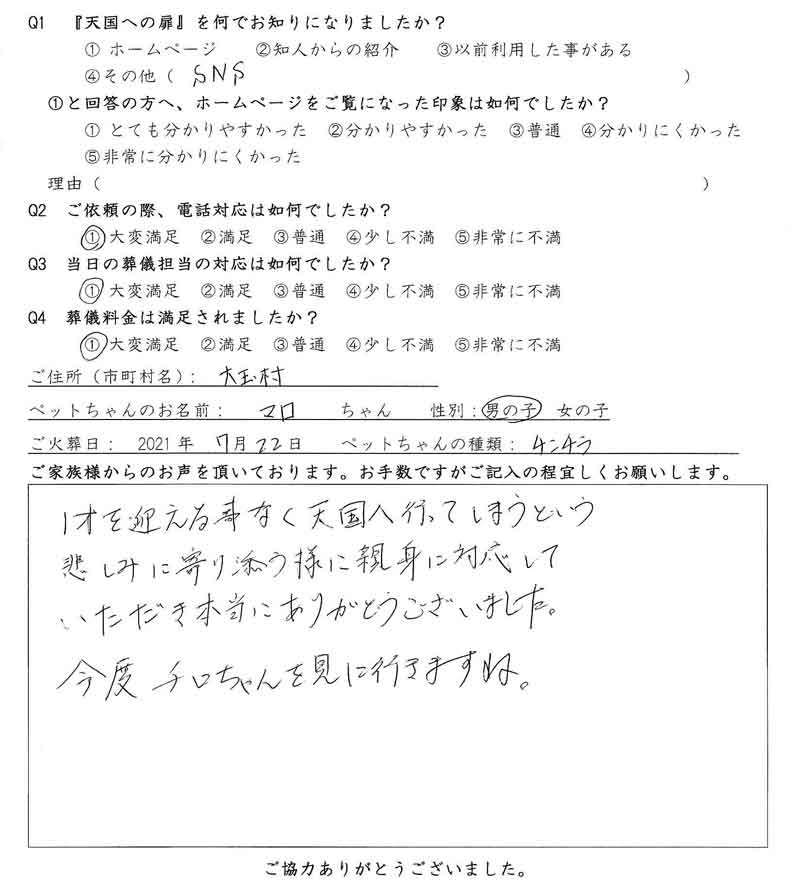 Q1 『天国への扉』を何でお知りになりましたか?
① ホームページ ②知人からの紹介 ③以前利用した事がある
④その他( SNS )
①と回答の方へ、ホームページをご覧になった印象は如何でしたか?
① とても分かりやすかった ②分かりやすかった ③普通 ④分かりにくかった
⑤非常に分かりにくかった
理由( )
Q2 ご依頼の際、電話対応は如何でしたか?
①大変満足 ②満足 ③普通 ④少し不満 ⑤非常に不満
Q3 当日の葬儀担当の対応は如何でしたか?
①大変満足 ②満足 ③普通 ④少し不満 ⑤非常に不満
Q4 葬儀料金は満足されましたか?
①大変満足 ②満足 ③普通 ④少し不満 ⑤非常に不満
ご住所(市町村名): 大玉村
ペットちゃんのお名前: マロ ちゃん 性別:男の子 女の子
ご火葬日: 2021 年 7月 22 日 ペットちゃんの種類: チンチラ
ご家族様からのお声を頂いております。お手数ですがご記入の程宜しくお願いします。
1才を迎える事なく天国へ行ってしまうという
悲しみに寄り添う様に親身に対応して
いただき本当にありがとうございました。
今度 チロちゃんを見に行きますね。
ご協力ありがとうございました。